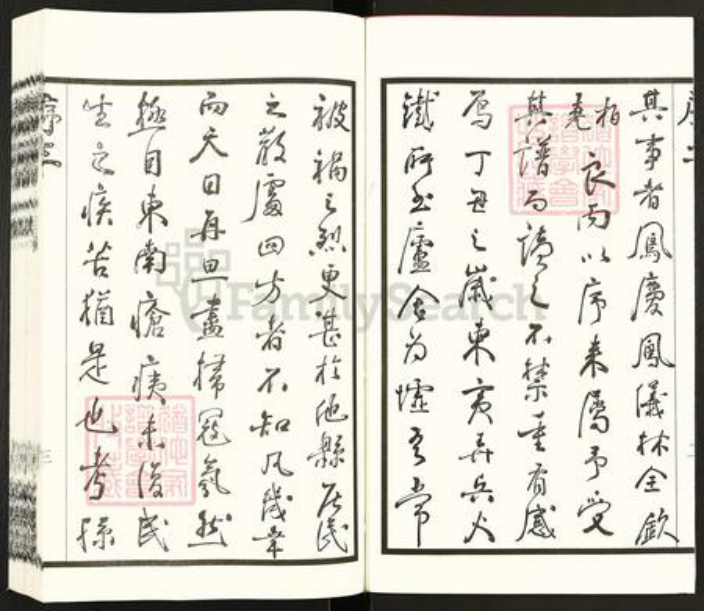 其事者鳳慶鳳儀林全欽
柏堯良丙以序來屬予受
其譜而讀之不禁重有感
焉丁丑之歲東夷弄兵火
鐵所至廬舍為墟吾常
被禍之烈更甚於他縣居民
之散處四方者不知凡幾幸
而天日再見盡掃寇氛然
極目東南瘡痍未復民
生之疾苦猶是也考孫
序三
FamilySearch